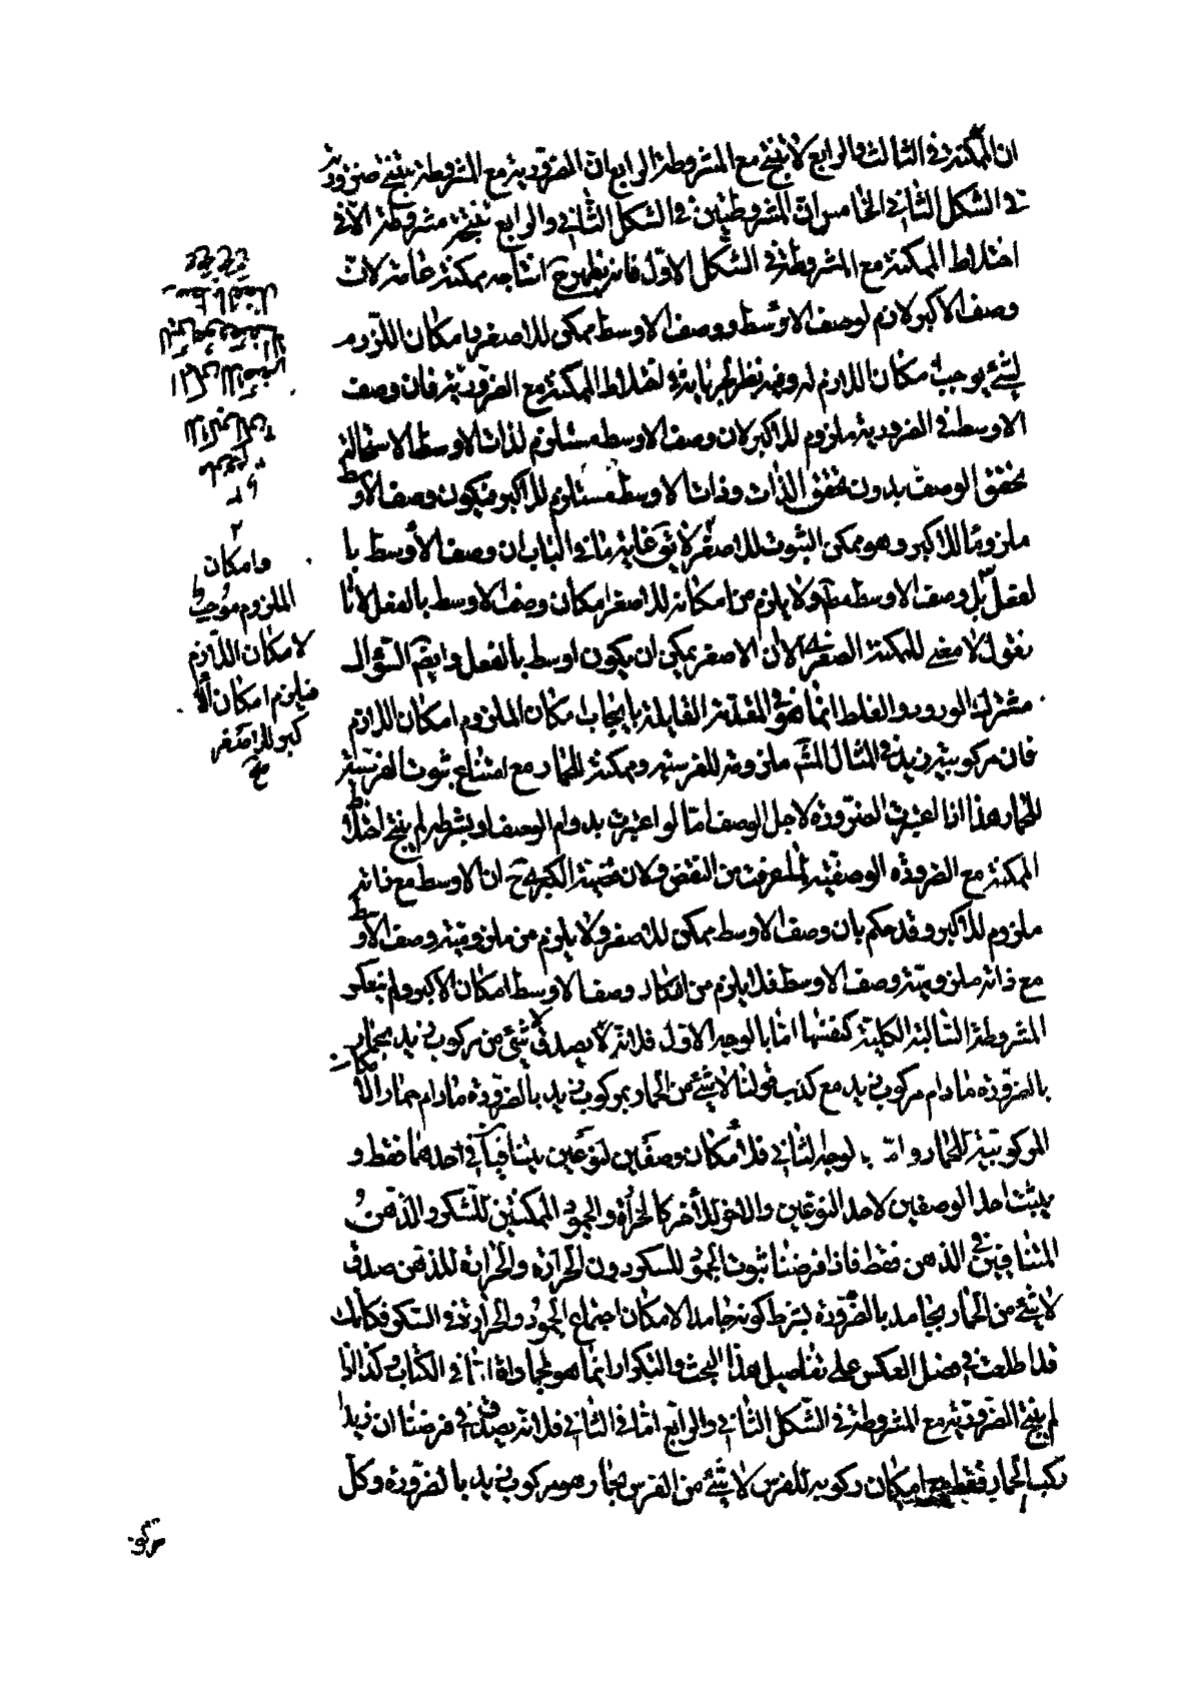 ان الممكنة في الثالث والرابع لا ينتج مع المشروطة الرابع ان الضرورية مع المشروطة ينتج ضرورية
في الشكل الثاني الخامس ان المشروطتين في الشكل الثاني والرابع تنتج مشروطة الا في
اختلاط الممكنة مع المشروطة في الشكل الاول فانه يظهر ح انتاجه ممكنة عامة لان
وصف الاكبر لازم لوصف الاوسط ووصف الاوسط ممكن للاصغر وامكان اللزوم
لشئ يوجب امكان اللازم له وفيه نظر لجريانه في اختلاط الممكنة مع الضرورية فان وصف
الاوسط في الضرورية ملزوم للاكبر لان وصف الاوسط مستلزم لذات الاوسط لاستحالة
تحقق الوصف بدون تحقق الذات وذات الاوسط مستلزم للاكبر فيكون وصف الاوسط
ملزوما للاكبر وهو ممكن الثبوت للاصغر لا يق غاية ما في الباب ان وصف الاوسط با
لفعل بل وصف الاوسط مط ولا يلزم من امكانه للاصغر امكان وصف الاوسط بالفعل لانا
نقول لا معنى للممكنة الصغرى الا ان الاصغر يمكن ان يكون اوسط بالفعل وايضا السؤال
مشترك الورود والغلط انما هو في المقدمة القايلة بايجاب امكان الملزوم امكان اللازم
فان مركوبية زيد في المثال المشهور ملزومة للفرسية وممكنة للحمار مع امتناع ثبوت الفرسية
للحمار هذا اذا اعتبرت الضرورة لاجل الوصف اما لو اعتبرت بدوام الوصف او بشرطه لم ينتج اختلاط
الممكنة مع الضرورة الوصفية لما عرفت من النقض ولان قضية الكبرى ح ان الاوسط مع ذاته
ملزوم للاكبر وقد حكم بان وصف الاوسط ممكن للاصغر ولا يلزم من ملزومية وصف الاوسط
مع ذاته ملزومية وصف الاوسط فلا يلزم من امكان وصف الاوسط امكان الاكبر ولم ينعكس
المشروطة السالبة الكلية كنفسها اما بالوجه الاول فلانه لا يصدق لا شئ من مركوب زيد بحمار
بالضرورة ما دام مركوب زيد مع كذب قولنا لا شئ من الحمار بمركوب زيد بالضرورة ما دام حمار الامكان
المركوبية للحمار واما بالوجه الثاني فلامكان وصفين لنوعين يتنافيان في احدهما فقط و
يثبت احد الوصفين لاحد النوعين والاخر للآخر كالحرارة والجمود الممكنين للسكر والدهن
المتنافيين في الدهن فقط فاذا فرضنا ثبوت الجمود للسكر دون الحرارة والحرارة للدهن صدق
لا شئ من الحار بجامد بالضرورة بشرط كونه جامدا لامكان اجتماع الجمود والحرارة في السكر فكانك
قد اطلعت في فصل العكس على تفاصيل هذا البحث والتكرار انما هو لمجاراة ما في الكتاب وكذا اذا
لم ينتج الضرورية مع المشروطة في الشكل الثاني والرابع اما في الثاني فلانه يصدق في فرضنا ان زيدا
ركب الحمار فقط مع امكان ركوبه للفرس لا شئ من الفرس بحمار هو مركوب زيد بالضرورة وكل
مركو
وامكان
الملزوم موجب
لامكان اللازم
فيلزم امكان الا
كبر للاصغر